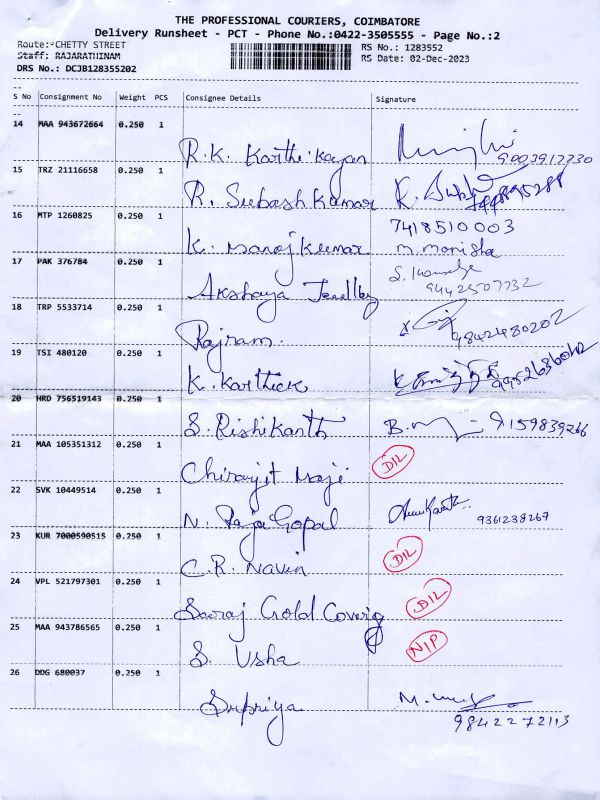 THE PROFESSIONAL COURIERS, COIMBATORE
Delivery Runsheet - PCT - Phone No.:0422-3505555 - Page No.:2
Route: CHETTY STREET
RS No.: 1283552
Staff: RAJARATHINAM
RS Date: 02-Dec-2023
DRS No.: DCJB128355202
S No Consignment No Weight PCS Consignee Details Signature
14 MAA 943672664 0.250 1
R.K. Karthikayan 9003912730
15 TRZ 21116658 0.250 1
R. Subash Kumar
16 MTP 1260825 0.250 1 7418510003
K. Manoj Kumar M. Monisha
17 PAK 376784 0.250 1
Akshaya Jewellky 9442507732
18 TRP 5533714 0.250 1
Rajram. 9842480202
19 TSI 480120 0.250 1
K. Karthick
20 HRD 756519143 0.250 1
S. Rishikanth 9159839266
21 MAA 105351312 0.250 1 DIL
Chirayjit Maji
22 SVK 10449514 0.250 1
N. Raja Gopal 9361238269
23 KUR 7000590515 0.250 1 DIL
C.R. Navin
24 VPL 521797301 0.250 1 DIL
Savraj Gold Coverig
25 MAA 943786565 0.250 1 NIP
S. Usha
26 DDG 680037 0.250 1
Sripriya 9842272113